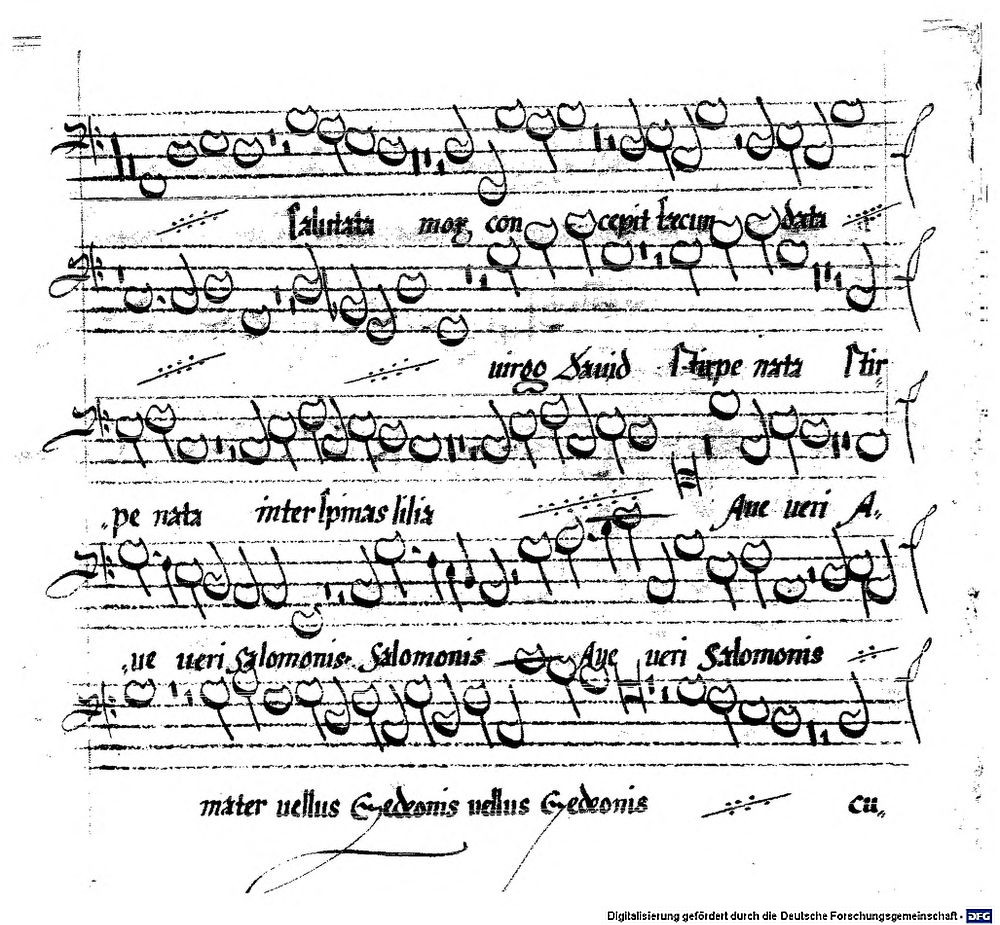 Salutata mox con cepit fæcun data
virgo David Stirpe nata Stir
pe nata inter spinas lilia Aue ueri A
ue ueri Salomonis Salomonis Aue ueri Salomonis
mater uellus Gedeonis uellus Gedeonis cu
Digitalisierung gefördert durch die Deutsche Forschungsgemeinschaft - DFG